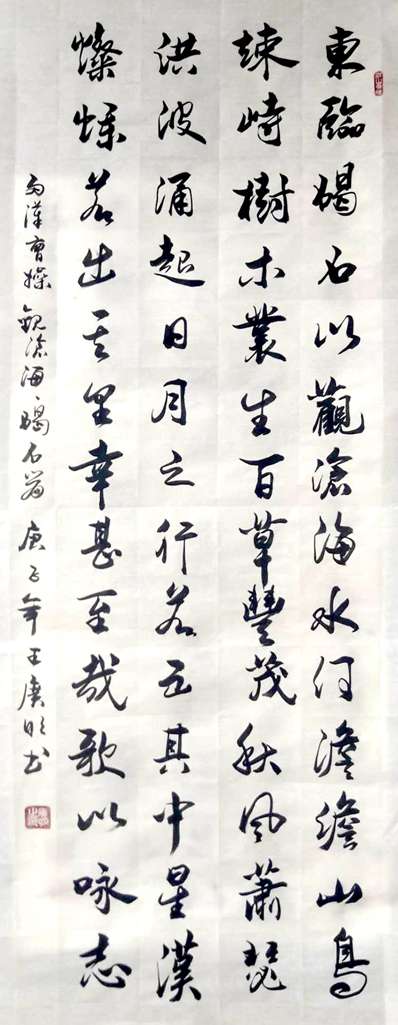 東臨碣石以觀滄海水何澹澹山島
竦峙樹木叢生百草豐茂秋風蕭瑟
洪波涌起日月之行若出其中星漢
燦爛若出其里幸甚至哉歌以咏志
漢曹操觀滄海碣石篇庚子年王廣明书